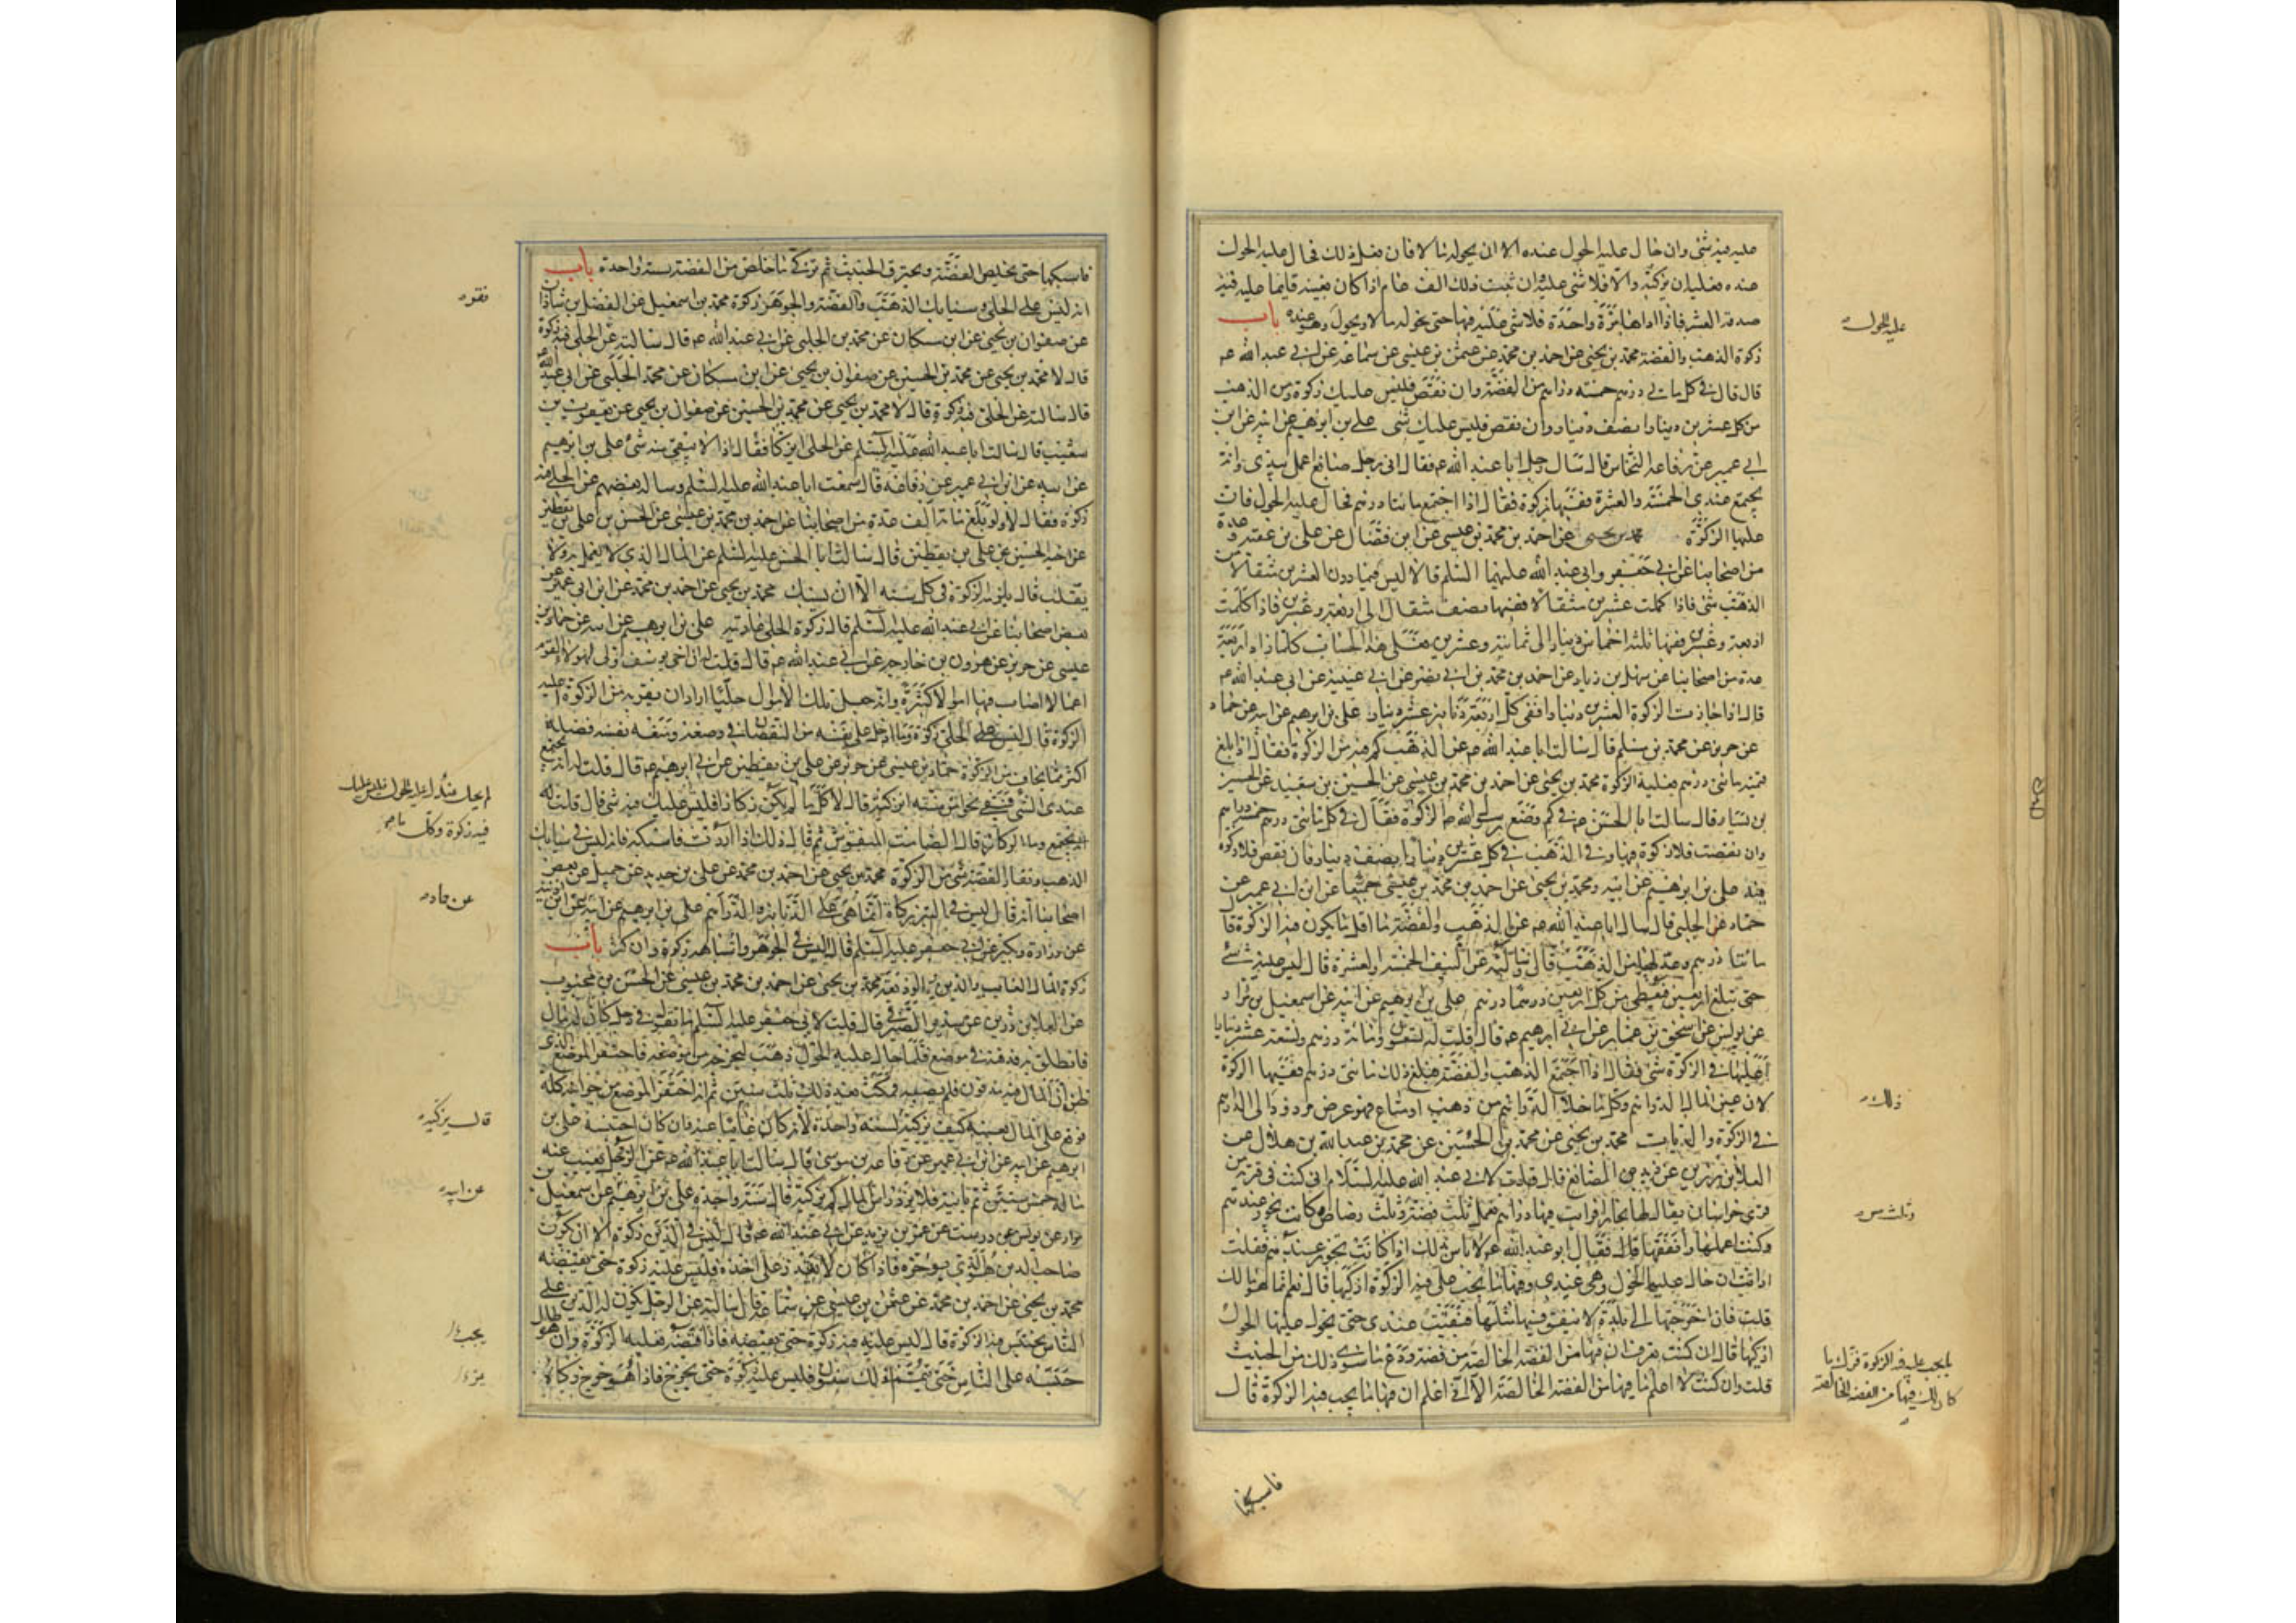 عليه فيه شئ وان حال عليه الحول عنده الا ان يحوله مالا فان فعل ذلك فحال عليه الحول
عنده فعليه ان يزكيه والا فلا شئ عليه وان ثبت ذلك الف عام اذا كان بعينه قايما عليه فيه
صدقة العشر فاذا اداها مرة واحدة فلا شئ عليه فيها حتى يحوله مالا ويحول وهو عنده باب
زكوة الذهب والفضة محمد بن يحيى عن احمد بن محمد عن عثمن بن عيسى عن سماعة عن ابى عبد الله عم
قال قال فى كل مائتى درهم خمسة دراهم من الفضة وان نقص فليس عليك زكوة ومن الذهب
من كل عشرين دينارا نصف دينار وان نقص فليس عليك شئ على بن ابرهيم عن ابيه عن ابن
ابى عمير عن رفاعة النخاس قال سال رجل ابا عبد الله عم فقال انى رجل صانع اعمل بيدى وانه
يجتمع عندى الخمسة والعشرة ففيها زكوة فقال اذا اجتمع مائتا درهم فحال عليه الحول فان
عليها الزكوة محمد بن يحيى عن احمد بن محمد بن عيسى عن ابن فضال عن على بن عقبة وعدة
من اصحابنا عن ابى جعفر وابى عبد الله عليهما السلم قالا ليس فيما دون العشرين مثقالا من
الذهب شئ فاذا كملت عشرين مثقالا ففيها نصف مثقال الى اربعة وعشرين فاذا كملت
اربعة وعشرين ففيها ثلثة اخماس دينار الى ثمانية وعشرين فعلى هذا الحساب كلما زاد اربعة
عدة من اصحابنا عن سهل بن زياد عن احمد بن محمد بن ابى نصر عن ابى عيينة عن ابى عبد الله عم
قال اذا جازت الزكوة العشرين دينارا ففى كل اربعة دنانير عشر دينار على بن ابرهيم عن ابيه عن حماد
عن حريز عن محمد بن مسلم قال سالت ابا عبد الله عم عن الذهب كم فيه من الزكوة فقال اذا بلغ
قيمته مائتى درهم فعليه الزكوة محمد بن يحيى عن احمد بن محمد بن عيسى عن الحسين بن سعيد عن الحسين
بن يسار قال سالت ابا الحسن عم فى كم وضع رسول الله ص الزكوة فقال فى كل مائتى درهم خمسة دراهم
وان نقصت فلا زكوة فيها وفى الذهب فى كل عشرين دينارا نصف دينار فان نقص فلا زكوة
فيه على بن ابرهيم عن ابيه ومحمد بن يحيى عن احمد بن محمد بن عيسى جميعا عن ابن ابى عمير عن
حماد عن الحلبى قال سال ابا عبد الله عم عن الذهب والفضة ما اقل ما يكون فيه الزكوة قال
مائتا درهم وعدلها من الذهب قال وسالته عن النيف الخمسة والعشرة قال ليس عليه شئ
حتى تبلغ اربعين فيعطى من كل اربعين درهما درهم على بن ابرهيم عن ابيه عن اسمعيل بن مرار
عن يونس عن اسحق بن عمار عن ابى ابرهيم عم قال قلت له تسعون ومائة درهم وتسعة عشر دينارا
اعليها فى الزكوة شئ فقال اذا اجتمع الذهب والفضة فبلغ ذلك مائتى درهم ففيها الزكوة
لان عين المال الدراهم وكل ما خلا الدراهم من ذهب او متاع فهو عرض مردود الى الدراهم
فى الزكوة والديات محمد بن يحيى عن محمد بن الحسين عن محمد بن عبد الله بن هلال عن
العلا بن رزين عن زيد الصائغ قال قلت لابى عبد الله عليه السلام انى كنت فى قرية من
قرى خراسان يقال لها بخارا فرايت فيها دراهم تعمل ثلث فضة وثلث رصاص وكانت تجوز عندهم
وكنت اعملها وانفقها قال فقال ابو عبد الله عم لا باس بذلك اذا كانت تجوز عندهم فقلت
ارايت ان حال عليها الحول وهى عندى وفيها ما يجب على فيه الزكوة ازكيها قال نعم انما هو مالك
قلت فان اخرجتها الى بلدة لا ينفق فيها مثلها فبقيت عندى حتى يحول عليها الحول
ازكيها قال ان كنت تعرف ان فيها من الفضة الخالصة من فضة ودع ما سوى ذلك من الخبيث
قلت وان كنت لا اعلم ما فيها من الفضة الخالصة الا انى اعلم ان فيها ما يجب فيه الزكوة قال
عليه الحول
ذلك
وثلث مس
ما يجب عليه فيه الزكوة فزك ما
كان لك فيها من الفضة الخالصة
فاسبكها
فاسبكها حتى يخلص الفضة ويحترق الخبيث ثم تزكى ما خلص من الفضة بسنة واحدة باب
انه ليس على الحلى وسبايك الذهب والفضة والجوهر زكوة محمد بن اسمعيل عن الفضل بن شاذان
عن صفوان بن يحيى عن ابن مسكان عن محمد بن الحلبى عن ابى عبد الله عم قال سالته عن الحلى فيه زكوة
قال لا محمد بن يحيى عن محمد بن الحسين عن صفوان بن يحيى عن ابن مسكان عن محمد الحلبى عن ابى عبد الله
قال سالته عن الحلى فيه زكوة قال لا محمد بن يحيى عن محمد بن الحسين عن صفوان بن يحيى عن يعقوب بن
شعيب قال سالت ابا عبد الله عليه السلم عن الحلى ايزكا فقال اذا لا يبقى منه شئ على بن ابرهيم
عن ابيه عن ابن ابى عمير عن رفاعة قال سمعت ابا عبد الله عليه السلم وساله بعضهم عن الحلى فيه
زكوة فقال لا ولو بلغ مائة الف عدة من اصحابنا عن احمد بن محمد بن عيسى عن الحسن بن على بن يقطين
عن اخيه الحسين عن على بن يقطين قال سالت ابا الحسن عليه السلم عن المال الذى لا يعمل به ولا
يقلب قال يلزمه الزكوة فى كل سنة الا ان يسبك محمد بن يحيى عن احمد بن محمد عن ابن ابى عمير عن
بعض اصحابنا عن ابى عبد الله عليه السلم قال زكوة الحلى عاريته على بن ابرهيم عن ابيه عن حماد بن
عيسى عن حريز عن هرون بن خارجه عن ابى عبد الله عم قال قلت له ان اخى يوسف ولى لهولاء القوم
اعمالا اصاب فيها اموالا كثيرة وانه جعل تلك الاموال حليا اراد ان يفر به من الزكوة اعليه
الزكوة قال ليس على الحلى زكوة وما ادخل على نفسه من النقصان فى وضعه ومنعه نفسه فضله
اكثر مما يخاف من الزكوة حماد بن عيسى عن حريز عن على بن يقطين عن ابى ابرهيم عم قال قلت له انه يجتمع
عندى الشئ فيبقى نحوا من سنة انزكيه قال لا كل ما لم يكن ركازا فليس عليك فيه شئ قال قلت له
وما الركاز قال الصامت المنقوش ثم قال ذلك اذا اردت فاسبكه فانه ليس فى سبايك
الذهب ونقار الفضة شئ من الزكوة محمد بن يحيى عن احمد بن محمد عن على بن حديد عن جميل عن بعض
اصحابنا انه قال ليس فى التبر زكاة انما هى على الدنانير والدراهم على بن ابرهيم عن ابيه عن ابن اذينه
عن زرارة وبكير عن ابى جعفر عليه السلم قال ليس فى الجوهر واشباهه زكوة وان كثر باب
زكوة المال الغايب والدين والوديعة محمد بن يحيى عن احمد بن محمد بن عيسى عن الحسن بن محبوب
عن العلا بن رزين عن سدير الصيرفى قال قلت لابى جعفر عليه السلم ما تقول فى رجل كان له مال
فانطلق به فدفنه فى موضع فلما حال عليه الحول ذهب ليخرجه من موضعه فاحتفر الموضع الذى
ظن ان المال فيه مدفون فلم يصبه فمكث بعد ذلك ثلث سنين ثم انه احتفر الموضع من جوانبه كله
فوقع على المال بعينه كيف يزكيه لسنة واحدة لانه كان غايبا عنه وان كان احتبسه على بن
ابرهيم عن ابيه عن ابن ابى عمير عن رفاعة بن موسى قال سالت ابا عبد الله عم عن الرجل يغيب عنه
ماله خمس سنين ثم ياتيه فلا يرد راس المال كم يزكيه قال سنة واحدة على بن ابرهيم عن اسمعيل بن
مرار عن يونس عن درست عن عمر بن يزيد عن ابى عبد الله عم قال ليس فى الدين زكوة الا ان يكون
صاحب الدين هو الذى يوخره فاذا كان لا يقدر على اخذه فليس عليه زكوة حتى يقبضه
محمد بن يحيى عن احمد بن محمد عن عثمن بن عيسى عن سماعة قال سالته عن الرجل يكون له الدين على
الناس يحتبس فيه الزكوة قال ليس عليه فيه زكوة حتى يقبضه فاذا قبضه فعليه الزكوة وان هو طال
حبسه على الناس حتى يتم لذلك سنون فليس عليه زكوة حتى يخرج فاذا هو خرج زكاه
فقره
لم يحل عليه الحول فليس عليك
فيه زكوة وكل ما
عن حماد
قال يزكيه
عن ابيه
يجب